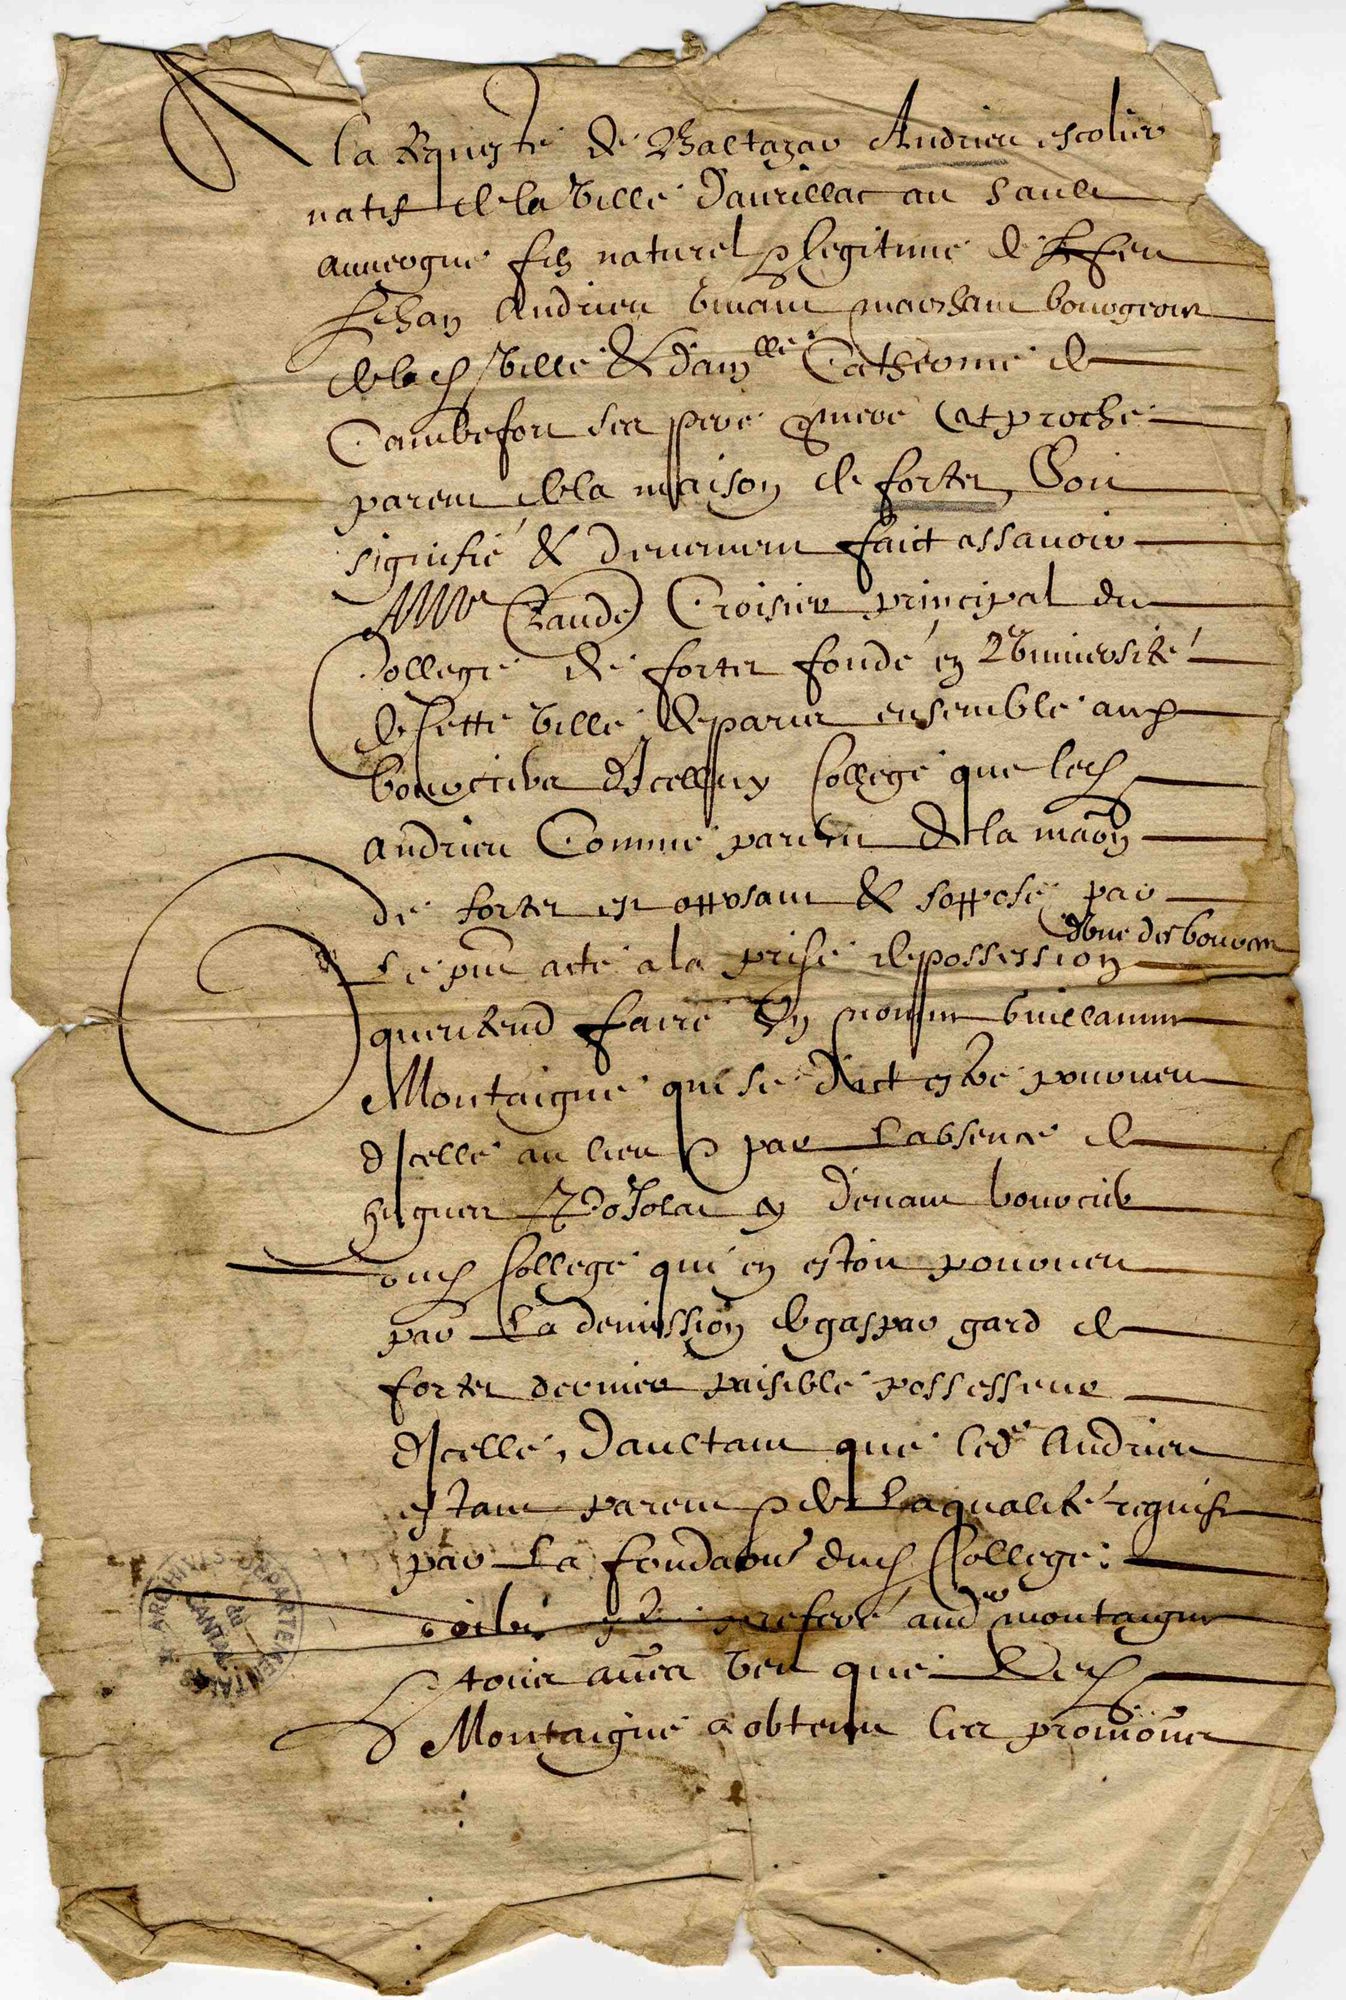 A la Requeste de Baltazar Andrieu escolier
natif de la ville d'aurillac au hault
auvergne filz naturel & legitime de feu
Jehan Andrieu vivant marchant bourgeois
de lad ville & dam^lle Catherine de
Cambefort ses pere & mere et proche
parent de la maison de fortet, Soit
signifié & deuement faict assavoir
a M^e Claude Croisier principal du
College de fortet fondé en l'université
de Cette ville de paris ensemble aux
boursiers d'Icelluy College que led
Andrieu Comme parent de la maōn
de fortet est opposant & s'oppose par
Le pnt acte a la prise de possession
d'une des bourses
que entend faire Un nommé Guillaume
Montaigne qui se dict estre pourveu
d'Icelle au lieu & par L'absence de
hugues devant boursier
dud College qui en estoit pourveu
par La demission de gaspar gard de
fortet dernier paisible possesseur
d'Icelle, d'aultant que led Andrieu
estant parent & de La qualité requise
par La fondaōn dud College
doibt estre preferé aud montaigne
Joint aussi veu que Led
Montaigne a obtenu les provions
ARCHIVES DEPARTEMENTALES
du
CANTAL